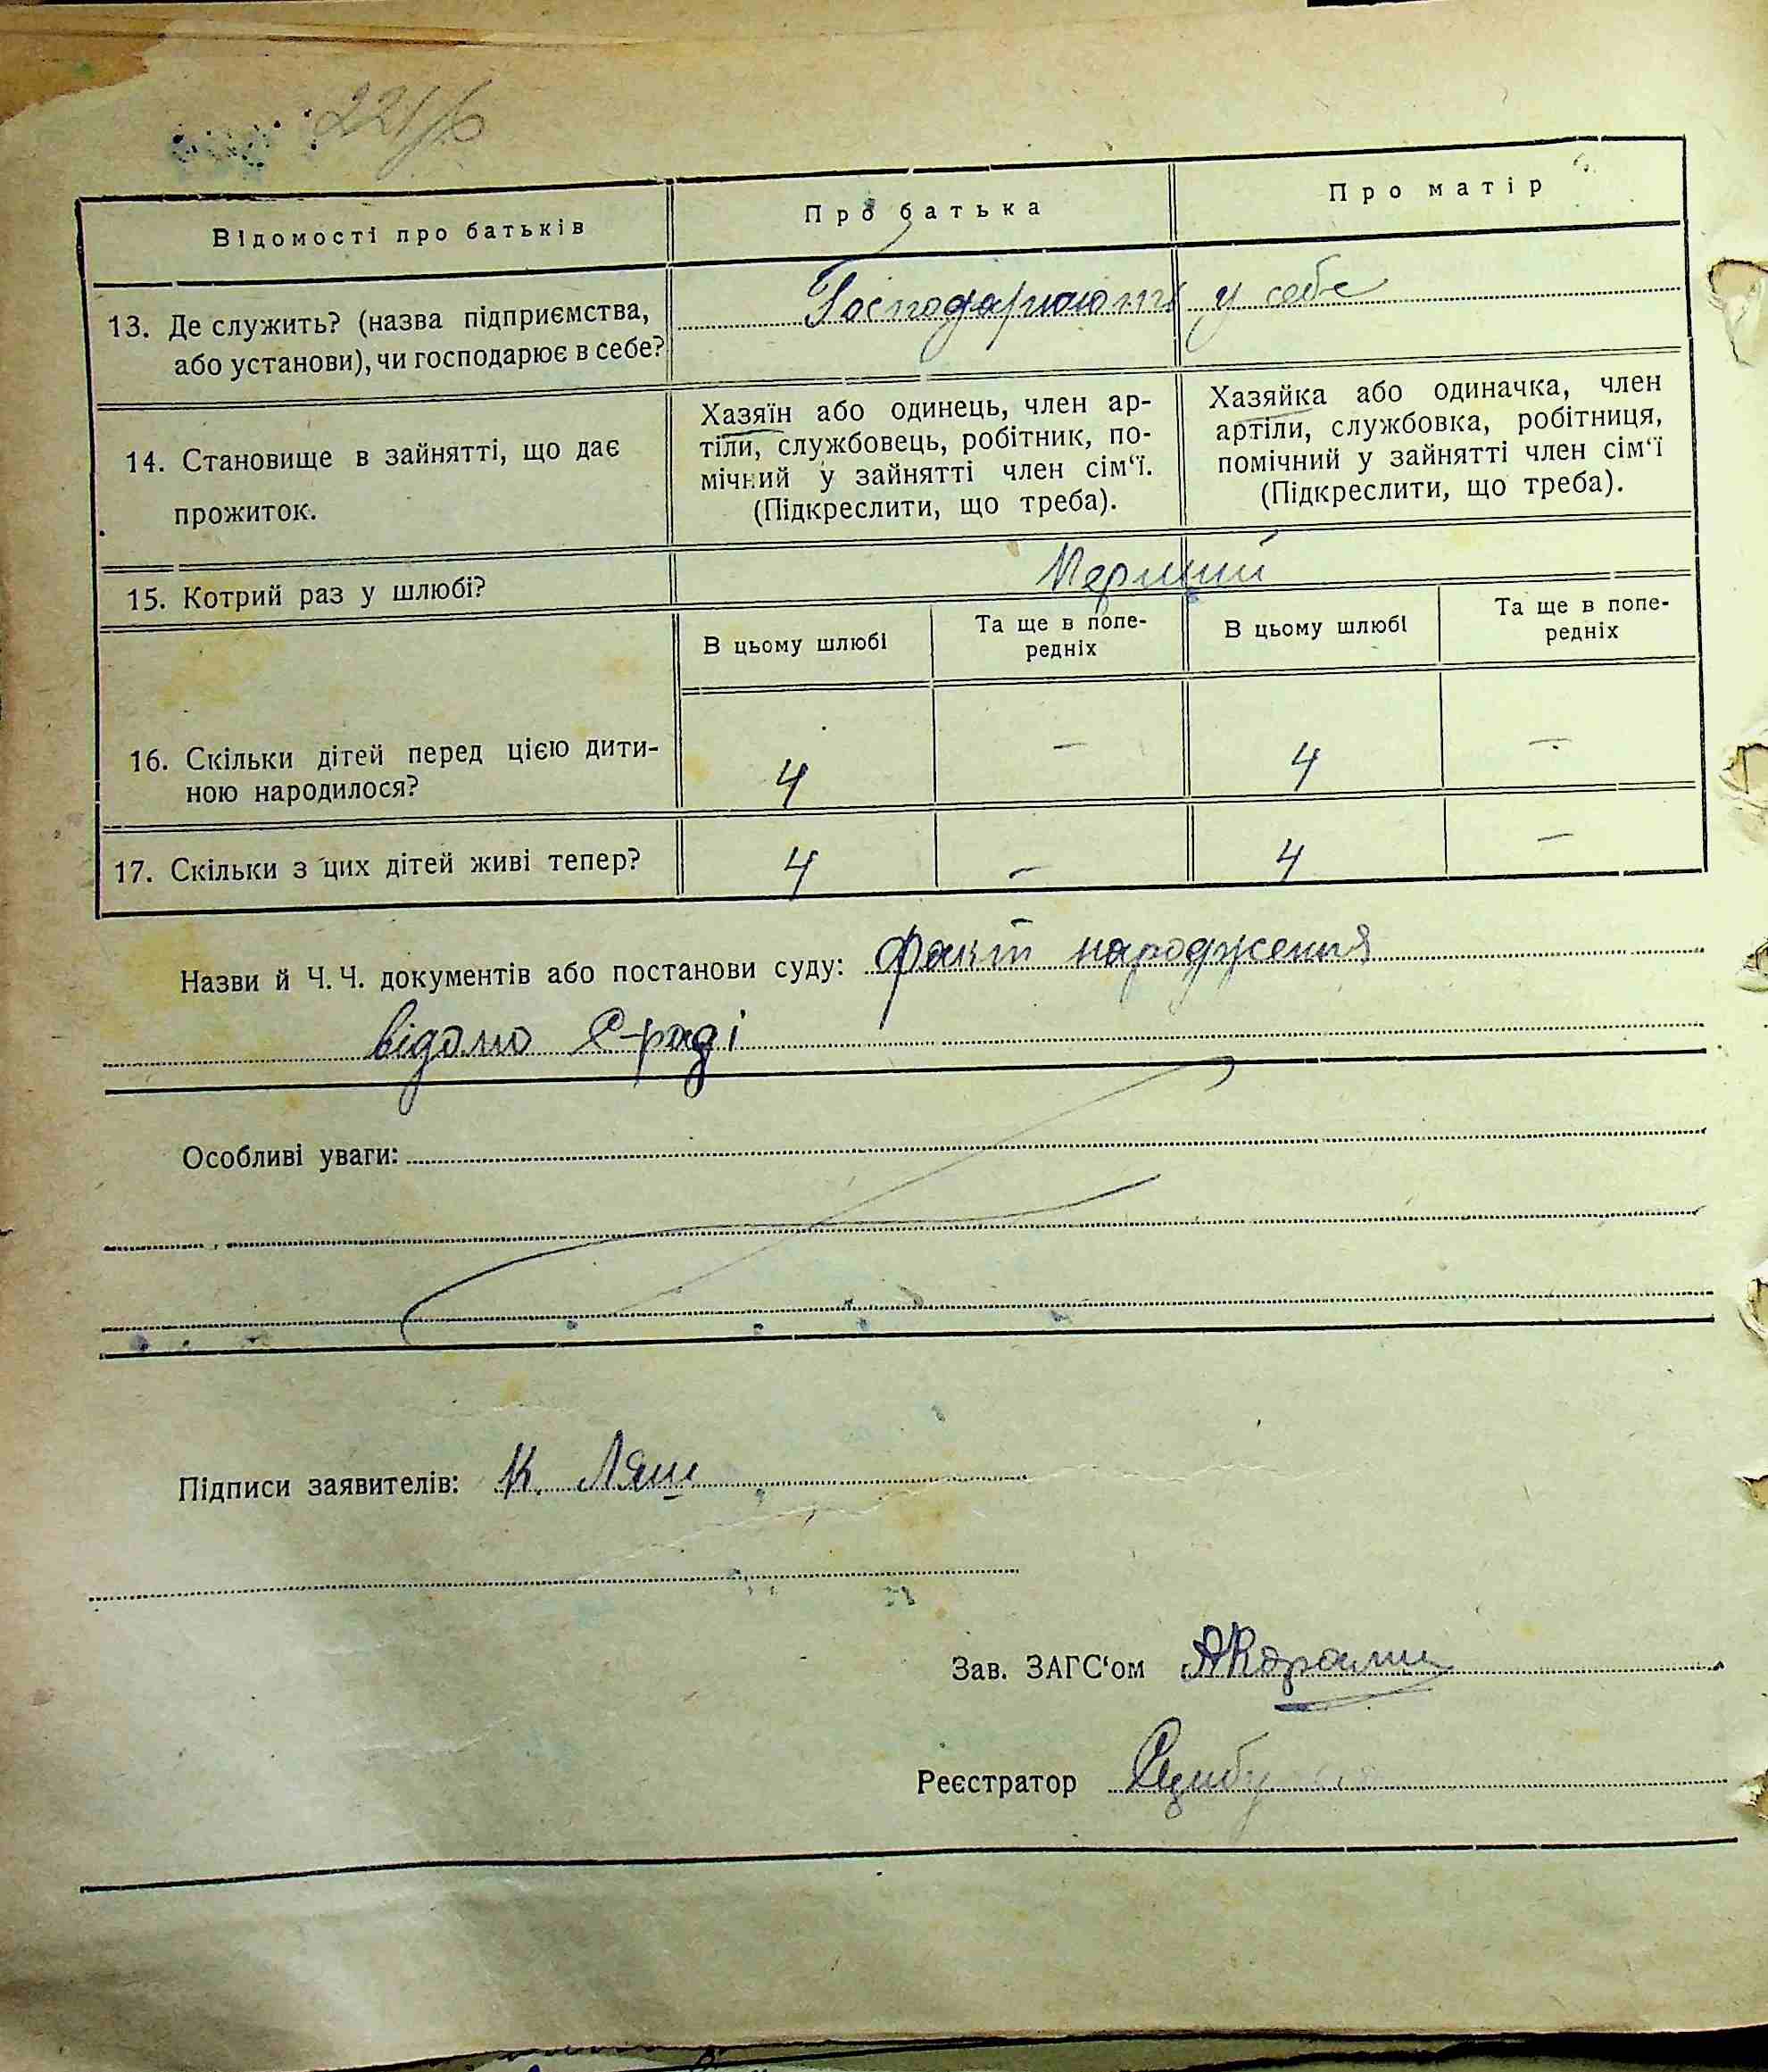 Відомості про батьків
Про батька
Про матір
13. Де служить? (назва підприємства,
або установи), чи господарює в себе?
Господарюють у себе
14. Становище в зайнятті, що дає
прожиток.
Хазяїн або одинець, член ар-
тіли, службовець, робітник, по-
мічний у зайнятті член сім‘ї.
(Підкреслити, що треба).
Хазяйка або одиначка, член
артіли, службовка, робітниця,
помічний у зайнятті член сім‘ї
(Підкреслити, що треба).
15. Котрий раз у шлюбі?
Перший
В цьому шлюбі
Та ще в попе-
редніх
В цьому шлюбі
Та ще в попе-
редніх
16. Скільки дітей перед цією дити-
ною народилося?
4 — 4 —
17. Скільки з цих дітей живі тепер?
4 — 4 —
Назви й Ч. Ч. документів або постанови суду: Факт народження
відомо С-раді
Особливі уваги:
Підписи заявителів: К. Ляш
Зав. ЗАГС‘ом
Реєстратор